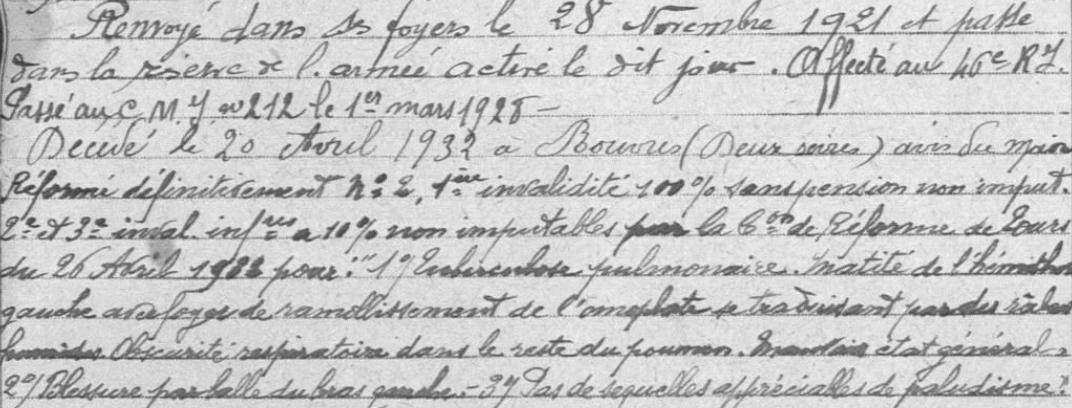 Renvoyé dans ses foyers le 28 Novembre 1921 et passe
dans la réserve de l'armée active le dit jour. Affecté au 46e R.I.
Passé au C.M.I. no 212 le 1er mars 1928 –
Décédé le 20 Avril 1932 à Rouvres (Deux sèvres) avis du maire
Réformé définitivement No 2, 1ère invalidité 100% sans pension non imput.
2e et 3e inval. infres à 10% non imputables par la Con de Réforme de Tours
du 26 Avril pour : "1o Tuberculose pulmonaire. Matité de l'hémitho
gauche avec foyer de ramollissement de l'omoplate se traduisant par des râles
humides Obscurité respiratoire dans le reste du poumon. Mauvais état général.
2o/ Blessure par balle du bras gauche. – 3o/ Pas de sequelles appréciables de paludisme."